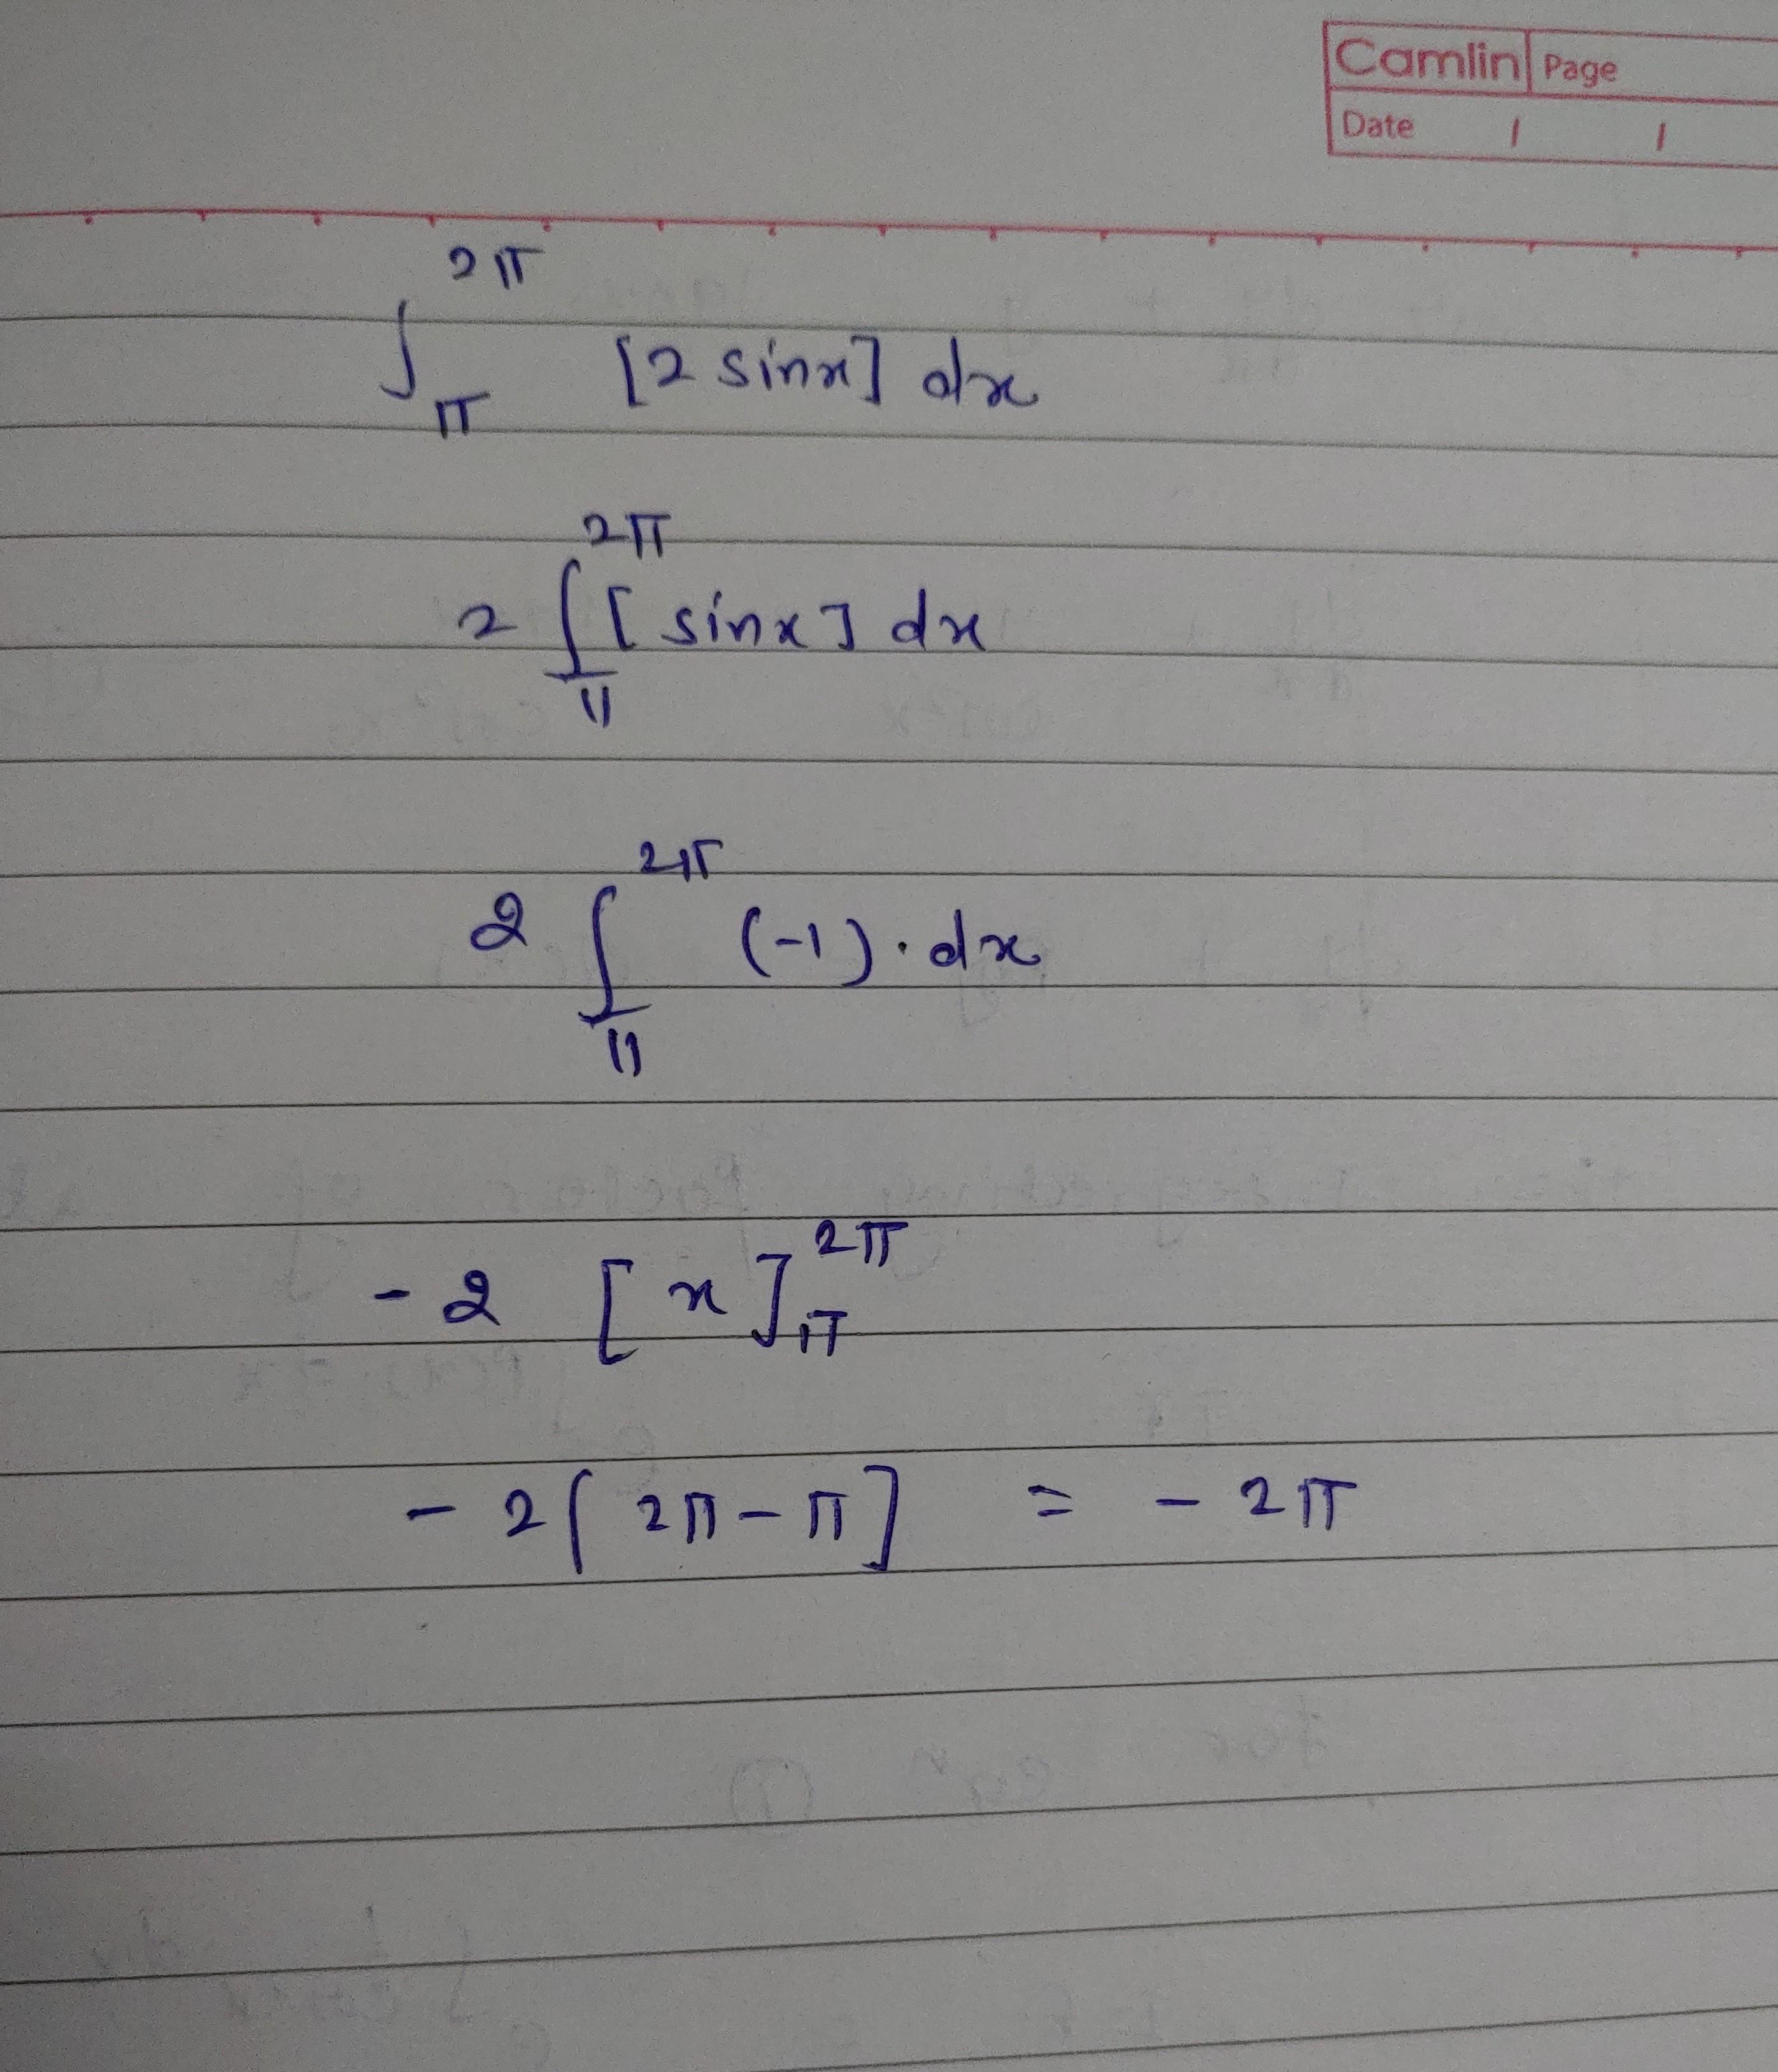 Camlin Page
Date / /
∫_π^{2π} [2 sinx] dx
2 ∫_π^{2π} [sinx] dx
2 ∫_π^{2π} (-1). dx
-2 [x]_π^{2π}
-2[2π-π] = -2π